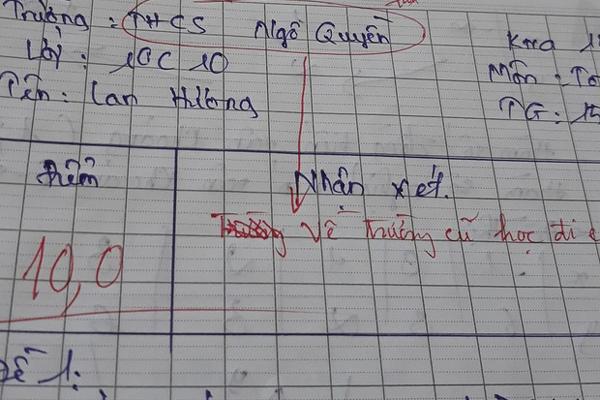 Trường : THCS Ngô Quyền
Lớp : 10C10
Tên : Lan Hương
Môn : To
TG : 15
Điểm
Nhận xét.
Về trường cũ học đi e
10,0
Đề 1: